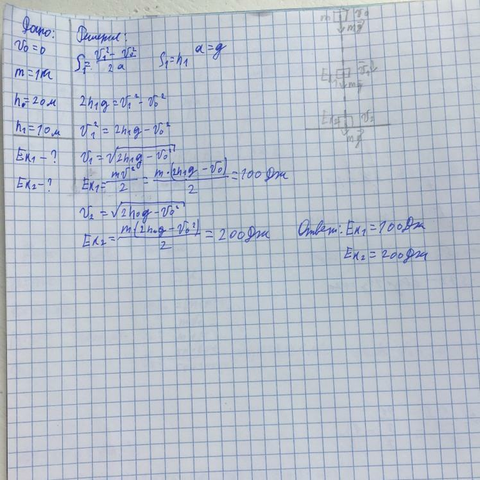 Дано:
V₀=0
m=1кг
h₀=20м
h₁=10м
Eк₁-?
Eк₂-?
Решение:
S₁=(V₁²-V₀²)/2a S₁=h₁ a=g
2h₁g=V₁²-V₀²
V₁²=2h₁g-V₀²
V₁=√(2h₁g-V₀²)
Eк₁=mV²/2=m·(2h₁g-V₀)/2=100Дж
V₂=√(2h₀g-V₀²)
Eк₂=m·(2h₀g-V₀²)/2=200Дж
Ответ: Eк₁=100Дж
Eк₂=200Дж
m
mg
mg
V₂
mg